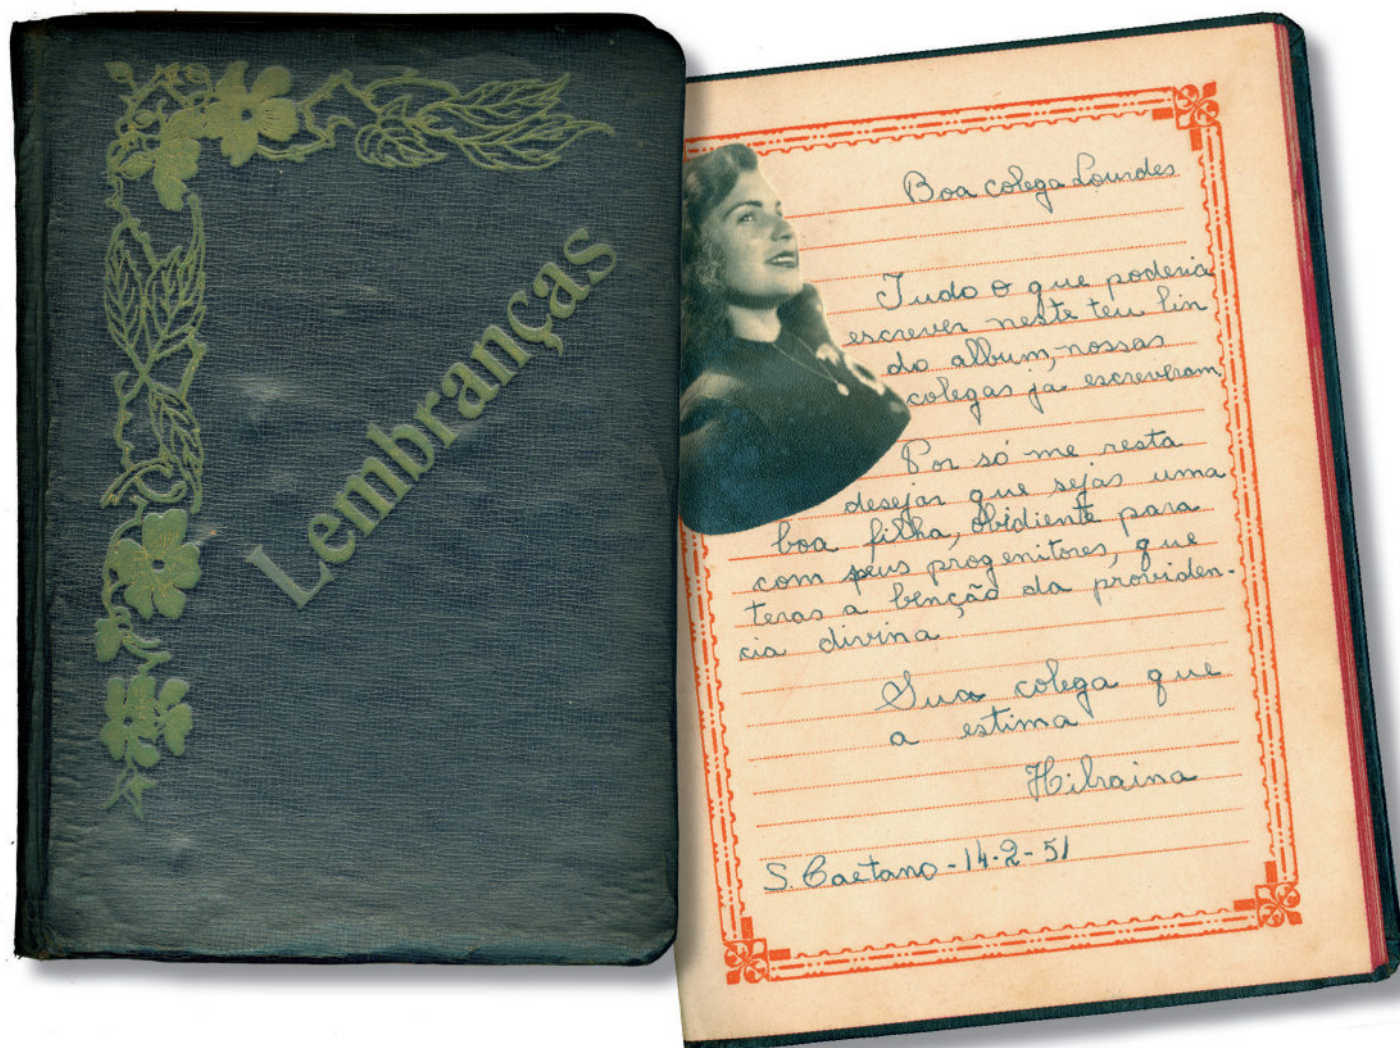 Lembranças
Boa colega Lourdes
Tudo o que poderia
escrever neste teu lin
do album, nossas
colegas já escreveram
Por só me resta
desejar que sejas uma
boa filha, obidiente para
com seus progenitores, que
teras a benção da providen-
cia divina
Sua colega que
a estima
Hilraina
S. Caetano - 14-2-51